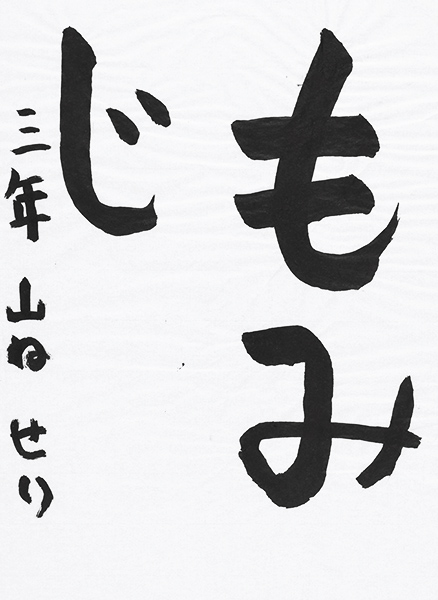 もみ
じ
三年 山る せり